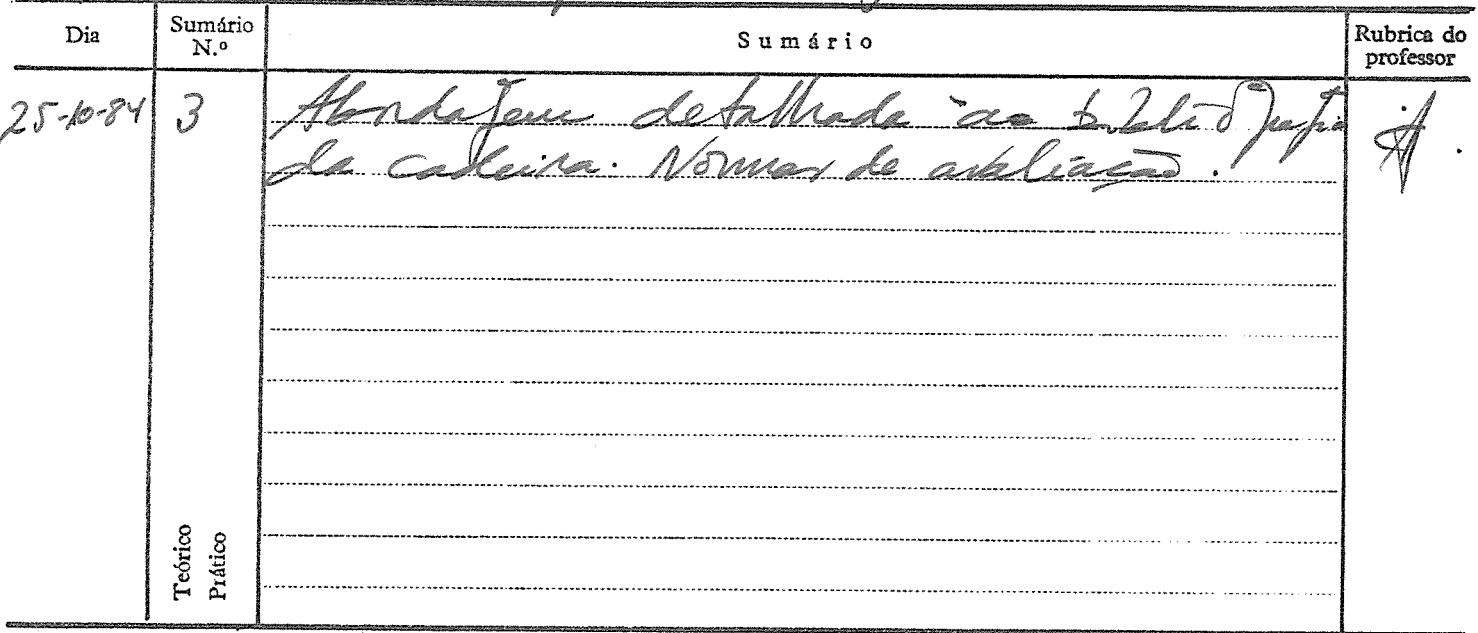 Dia
Sumário N.º
Sumário
Rubrica do professor
25-10-84
3
Abordagem detalhada à bibliografia
da cadeira. Normas de avaliação.
Teórico
Prático